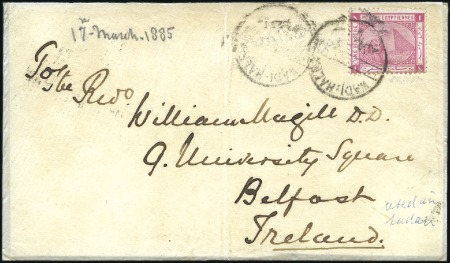 17 March. 1885
POSTES EGYPTIENNES
1
WADI-HALFA
To the Revd
William Magill D.D.
9. University Square
Belfast
Ireland.
used in
Sudan